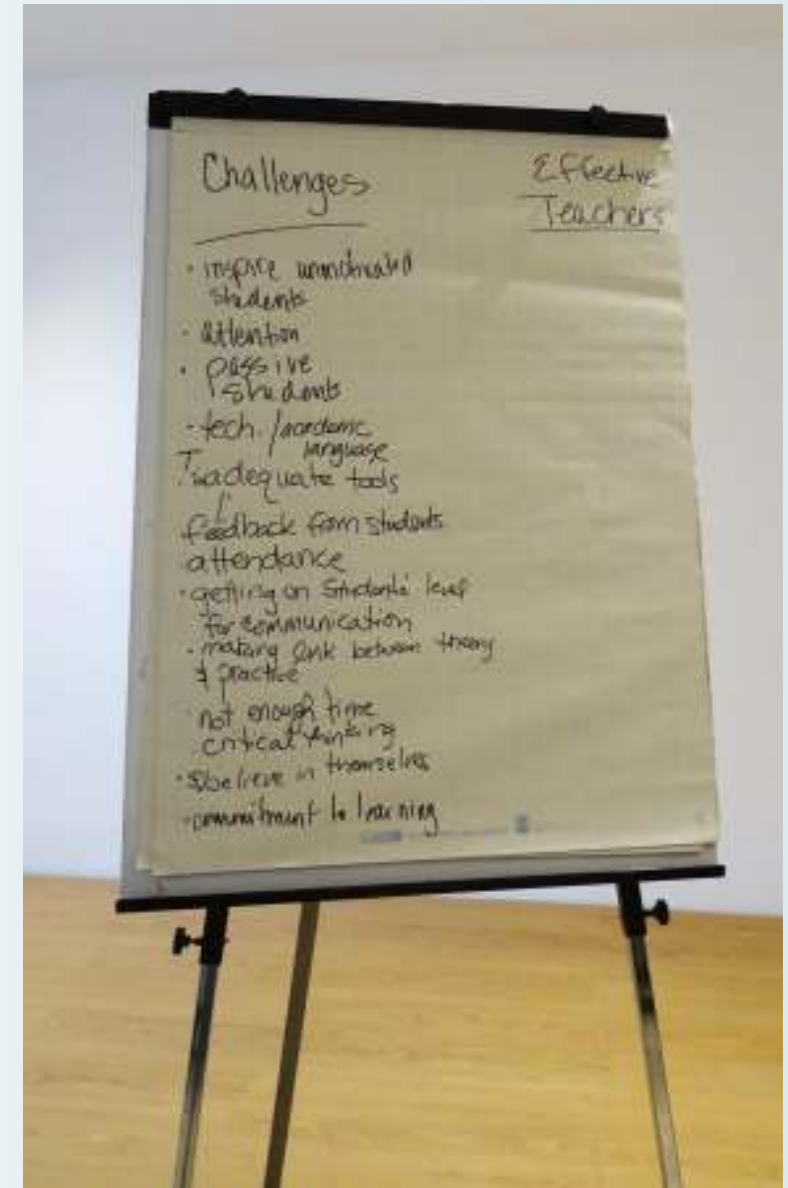 Challenges
Effective
Teachers
• inspire unmotivated
students
• attention
• passive
students
• tech. / academic
language
• Inadequate tools
• feedback from students
• attendance
• getting on students' level
for communication
• making link between theory
& practice
• not enough time
critical thinking
• believe in themselves
• commitment to learning